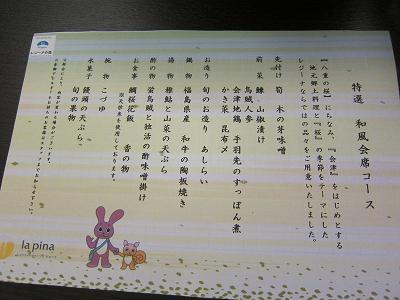 特選 和風会席コース
『八重の桜』にちなみ、『会津』をはじめとする
地元郷土料理と『桜』の季節をテーマにした
レジーナならではの品々をご用意いたしました。
先付け 筍 木の芽味噌
前菜 鰊 山椒漬け
鳥賊人参
会津地鶏 手羽先のすっぽん煮
かき菜 昆布〆
お造り 旬のお造り あしらい
鍋物 福島県産 和牛の陶板焼き
揚物 稚鮎と山菜の天ぷら
酢の物 蛍烏賊と独活の酢味噌掛け
お食事 鯛桜花飯 香の物
椀物 こづゆ
饅頭の天ぷら
水菓子 旬の果物
la pina